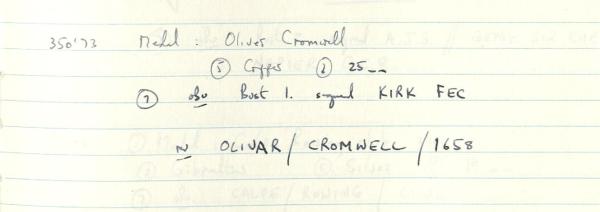 350'73 Medal : Oliver Cromwell
⑤ Copper ⑥ 25__
⑦ obv Bust l. signed KIRK FEC
OLIVAR / CROMWELL / 1658